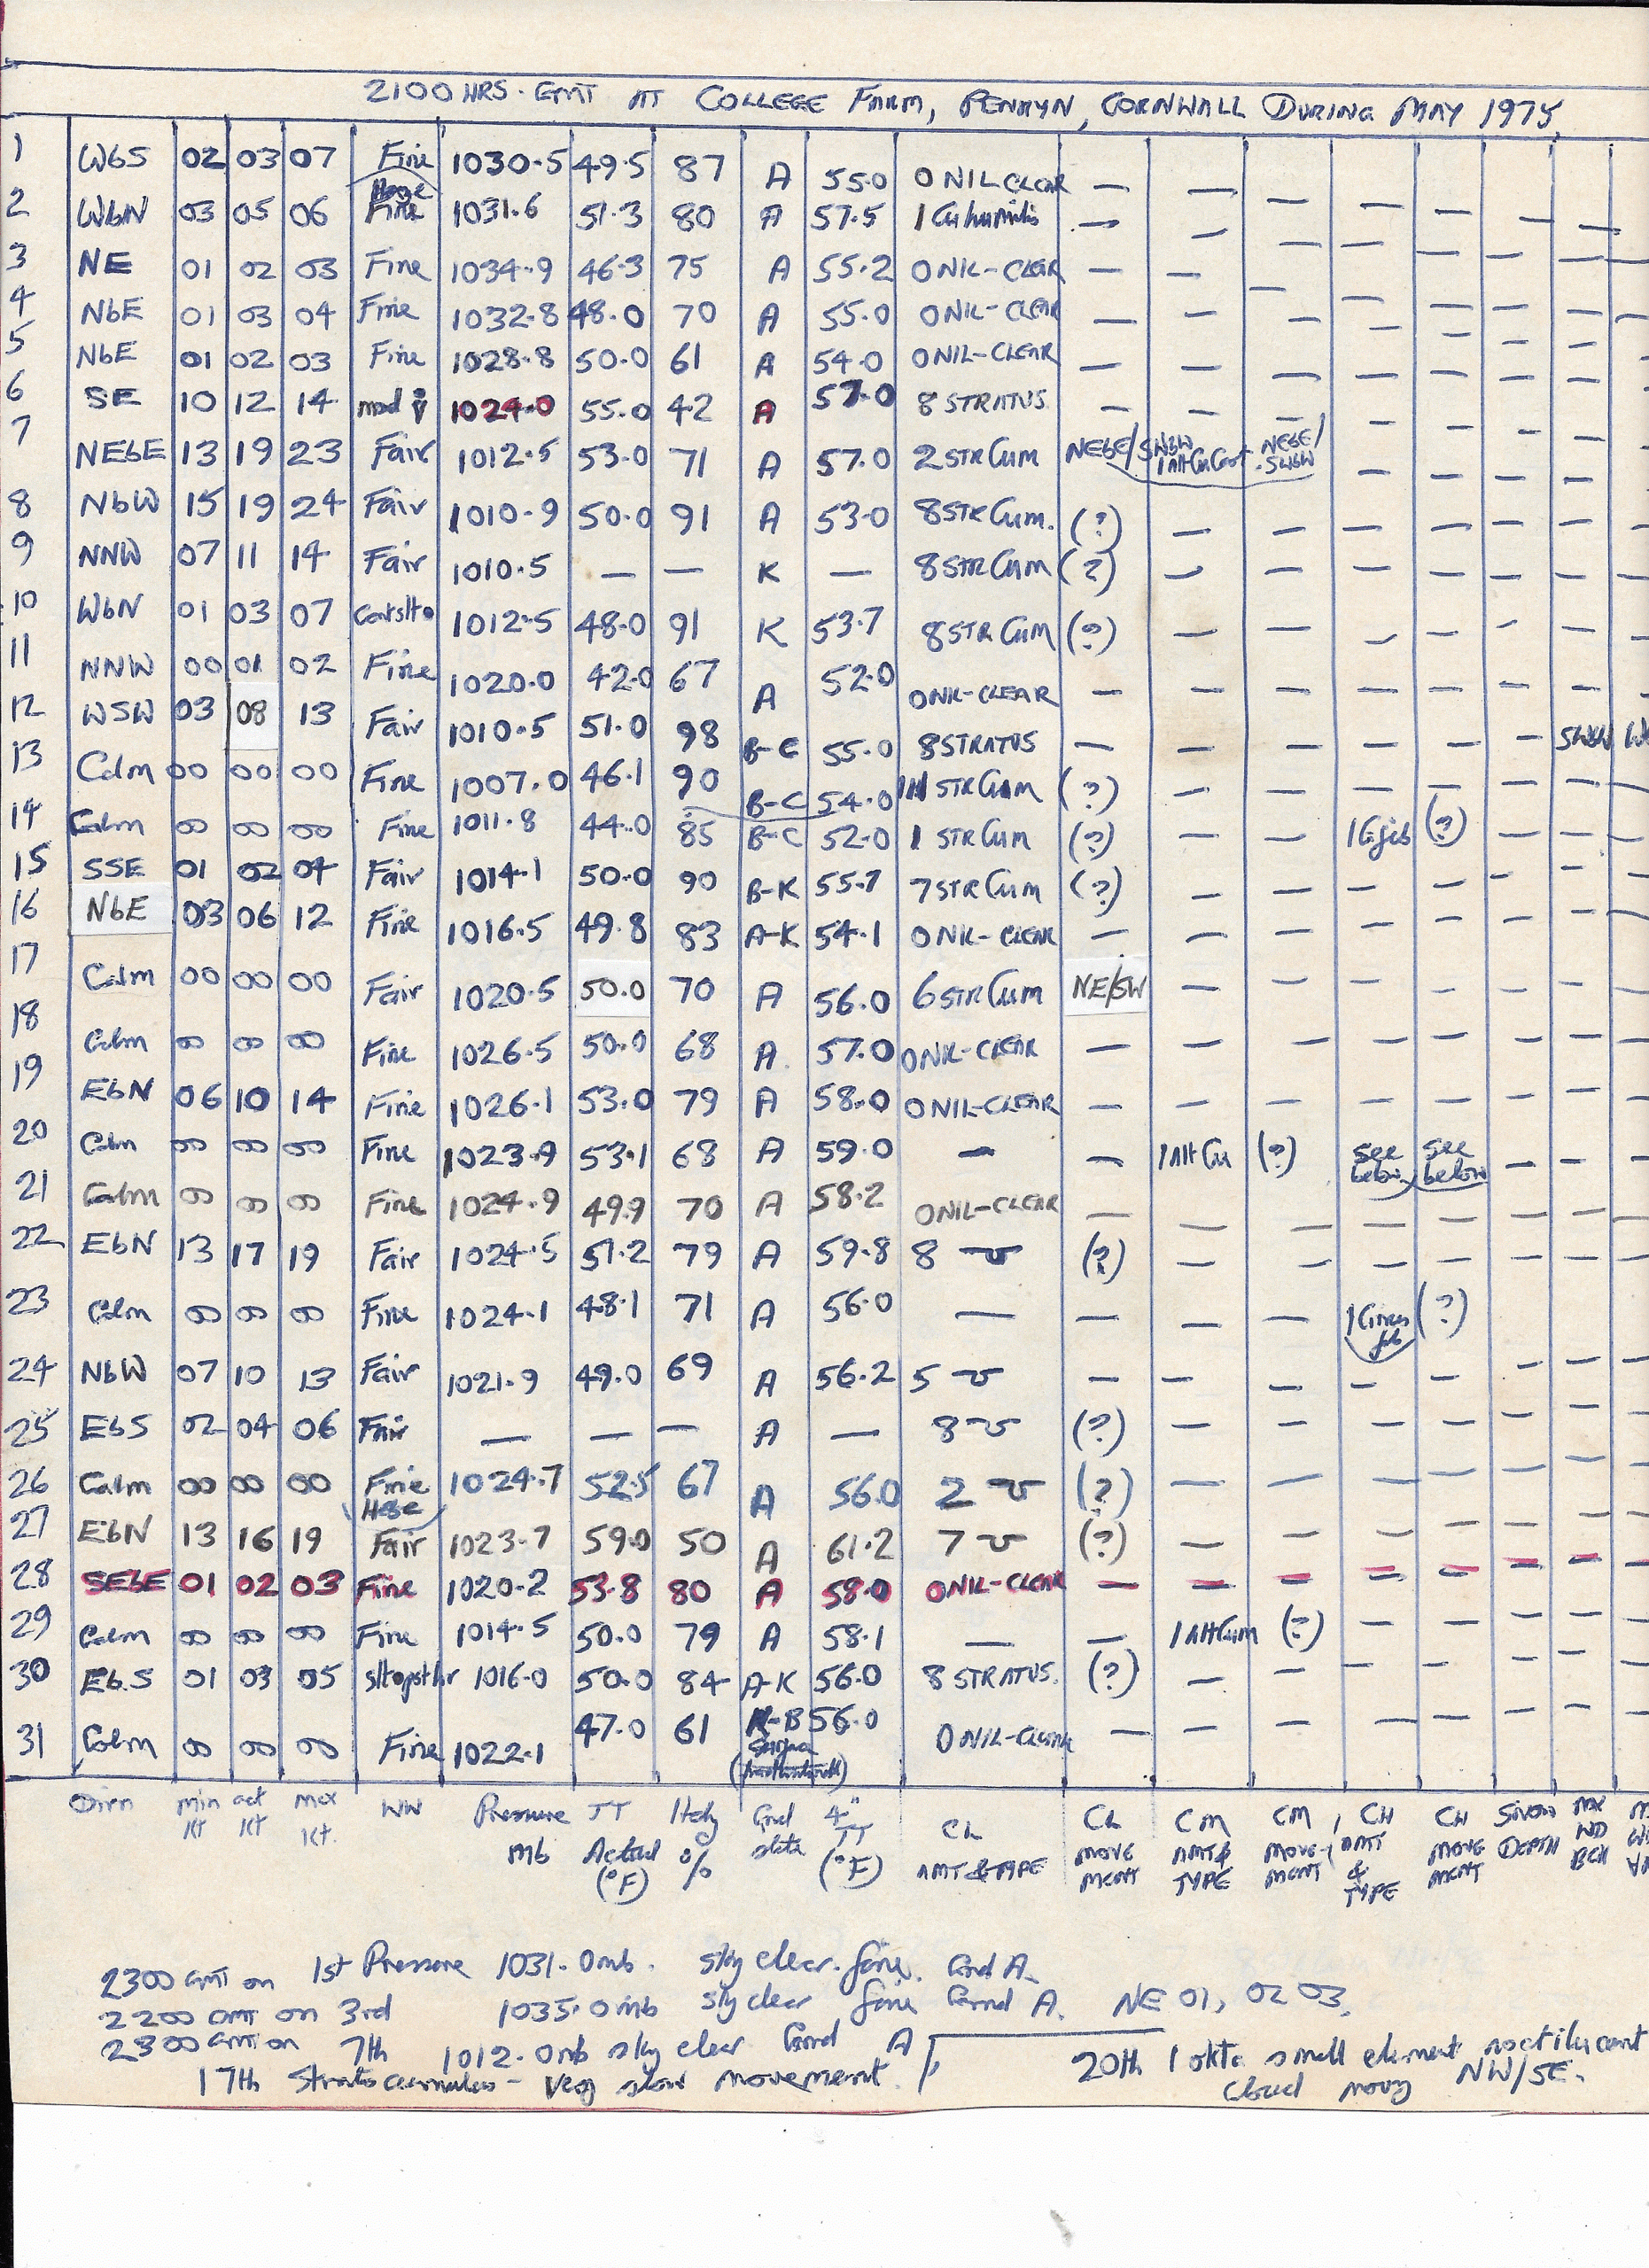 2100 HRS. GMT AT COLLEGE FARM, PENRYN, CORNWALL DURING MAY 1975.
1 WbS 02 03 07 Fine Haze 1030.5 49.5 87 A 55.0 0 NIL CLEAR — —  — — — — —
2 WbN 03 05 06 Fine 1031.6 51.3 80 A 57.5 1 Cu humilis — — — — — — —
3 NE 01 02 03 Fine 1034.9 46.3 75 A 55.2 0 NIL-CLEAR — — — — — — —
4 NbE 01 03 04 Fine 1032.8 48.0 70 A 55.0 0 NIL-CLEAR — — — — — — —
5 NbE 01 02 03 Fine 1028.8 50.0 61 A 54.0 0 NIL-CLEAR — — — — — — —
6 SE 10 12 14 mod 1024.0 55.0 42 A 57.0 8 STRATUS — — — — — — —
7 NEbE 13 19 23 Fair 1012.5 53.0 71 A 57.0 2 STR Cum NEbE/SWbW 1 Alt Cu Cast NEbE/SWbW — — — —
8 NbW 15 19 24 Fair 1010.9 50.0 91 A 53.0 8 STR Cum. (?) — — — — — —
9 NNW 07 11 14 Fair 1010.5 — — K — 8 STR Cum (?) — — — — — —
10 WbN 01 03 07 1012.5 48.0 91 K 53.7 8 STR Cum (?) — — — — — —
11 NNW 00 01 02 Fine 1020.0 42.0 67 A 52.0 0 NIL-CLEAR — — — — — — —
12 WSW 03 08 13 Fair 1010.5 51.0 98 B-C 55.0 8 STRATUS — — — — — — SWbW
13 Calm 00 00 00 Fine 1007.0 46.1 90 B-C 54.0 1 STR Cum (?) — — — — — —
14 Calm 00 00 00 Fine 1011.8 44.0 85 B-C 52.0 1 STR Cum (?) — — (?) — —
15 SSE 01 02 04 Fair 1014.1 50.0 90 B-K 55.7 7 STR Cum (?) — — — — — —
16 NbE 03 06 12 Fine 1016.5 49.8 83 A-K 54.1 0 NIL-CLEAR — — — — — — —
17 Calm 00 00 00 Fair 1020.5 50.0 70 A 56.0 6 STR Cum NE/SW — — — — — —
18 Calm 00 00 00 Fine 1026.5 50.0 68 A. 57.0 0 NIL-CLEAR — — — — — — —
19 EbN 06 10 14 Fine 1026.1 53.0 79 A 58.0 0 NIL-CLEAR — — — — — — —
20 Calm 00 00 00 Fine 1023.9 53.1 68 A 59.0 — — 1 Alt Cu (?) see below see below — —
21 Calm 00 00 00 Fine 1024.9 49.9 70 A 58.2 0 NIL-CLEAR — — — — — — —
22 EbN 13 17 19 Fair 1024.5 51.2 79 A 59.8 8 (?) — — — — — —
23 Calm 00 00 00 Fine 1024.1 48.1 71 A 56.0 — — — — 1 Cirrus fib (?)
24 NbW 07 10 13 Fair 1021.9 49.0 69 A 56.2 5 — — — — — — —
25 EbS 02 04 06 Fair — — — A — 8 (?) — — — — — —
26 Calm 00 00 00 Fine Haze 1024.7 52.5 67 A 56.0 2 (?) — — — — — —
27 EbN 13 16 19 Fair 1023.7 59.0 50 A 61.2 7 (?) — — — — — —
28 SEbE 01 02 03 Fine 1020.2 53.8 80 A 58.0 0 NIL-CLEAR — — — — — — —
29 Calm 00 00 00 Fine 1014.5 50.0 79 A 58.1 — — 1 Alt Cum (?) — — — —
30 EbS 01 03 05 1016.0 50.0 84 A-K 56.0 8 STRATUS. (?) — — — — — —
31 Calm 00 00 00 Fine 1022.1 47.0 61 56.0 0 NIL-CLEAR — — — — — — —
Surface
Dirn min Kt act Kt max Kt. WW Pressure mb TT Actual (°F) Hdy % Gnd state 4" TT (°F) CL AMT & TYPE CL MOVE MENT CM AMT & TYPE CM MOVE-MENT CH AMT & TYPE CH MOVE MENT SNOW DEPTH MX WD BCH
2300 GMT on 1st Pressure 1031.0mb. sky clear. fine. Gnd A.
2200 GMT on 3rd 1035.0mb sky clear fine Grnd A. NE 01, 02 03,
2300 GMT on 7th 1012.0mb sky clear Grnd A
17th Stratocumulus - Very slow movement.
20th 1 okta small element noctilucent
cloud movg NW/SE.